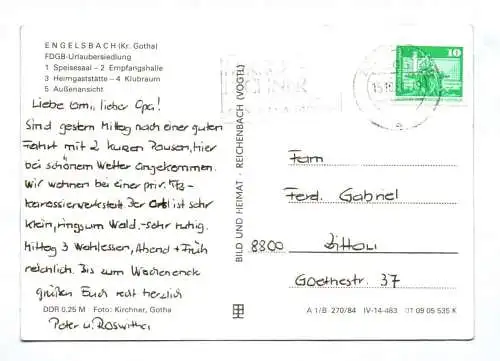 ENGELSBACH (Kr. Gotha)
FDGB-Urlaubersiedlung
1 Speisesaal – 2 Empfangshalle
3 Heimgaststätte – 4 Klubraum
5 Außenansicht
Liebe Omi, lieber Opa!
Sind gestern Mittag nach einer guten
Fahrt mit 2 kurzen Pausen, hier
bei schönem Wetter angekommen.
Wir wohnen bei einer priv. Kfz-
karosseriewerkstatt. Der Ort ist sehr
klein, ringsum Wald - sehr ruhig.
Mittag 3 Wahlessen, Abend + Früh
reichlich. Bis zum Wochenende
grüßen Euch recht herzlich
Peter u. Roswitha
DDR 0,25 M Foto: Kirchner, Gotha
BILD UND HEIMAT · REICHENBACH (VOGTL)
10
Fam
Ferd. Gabriel
8800 Zittau
Goethestr. 37
A 1/B 270/84 IV-14-483 01 09 05 535 K